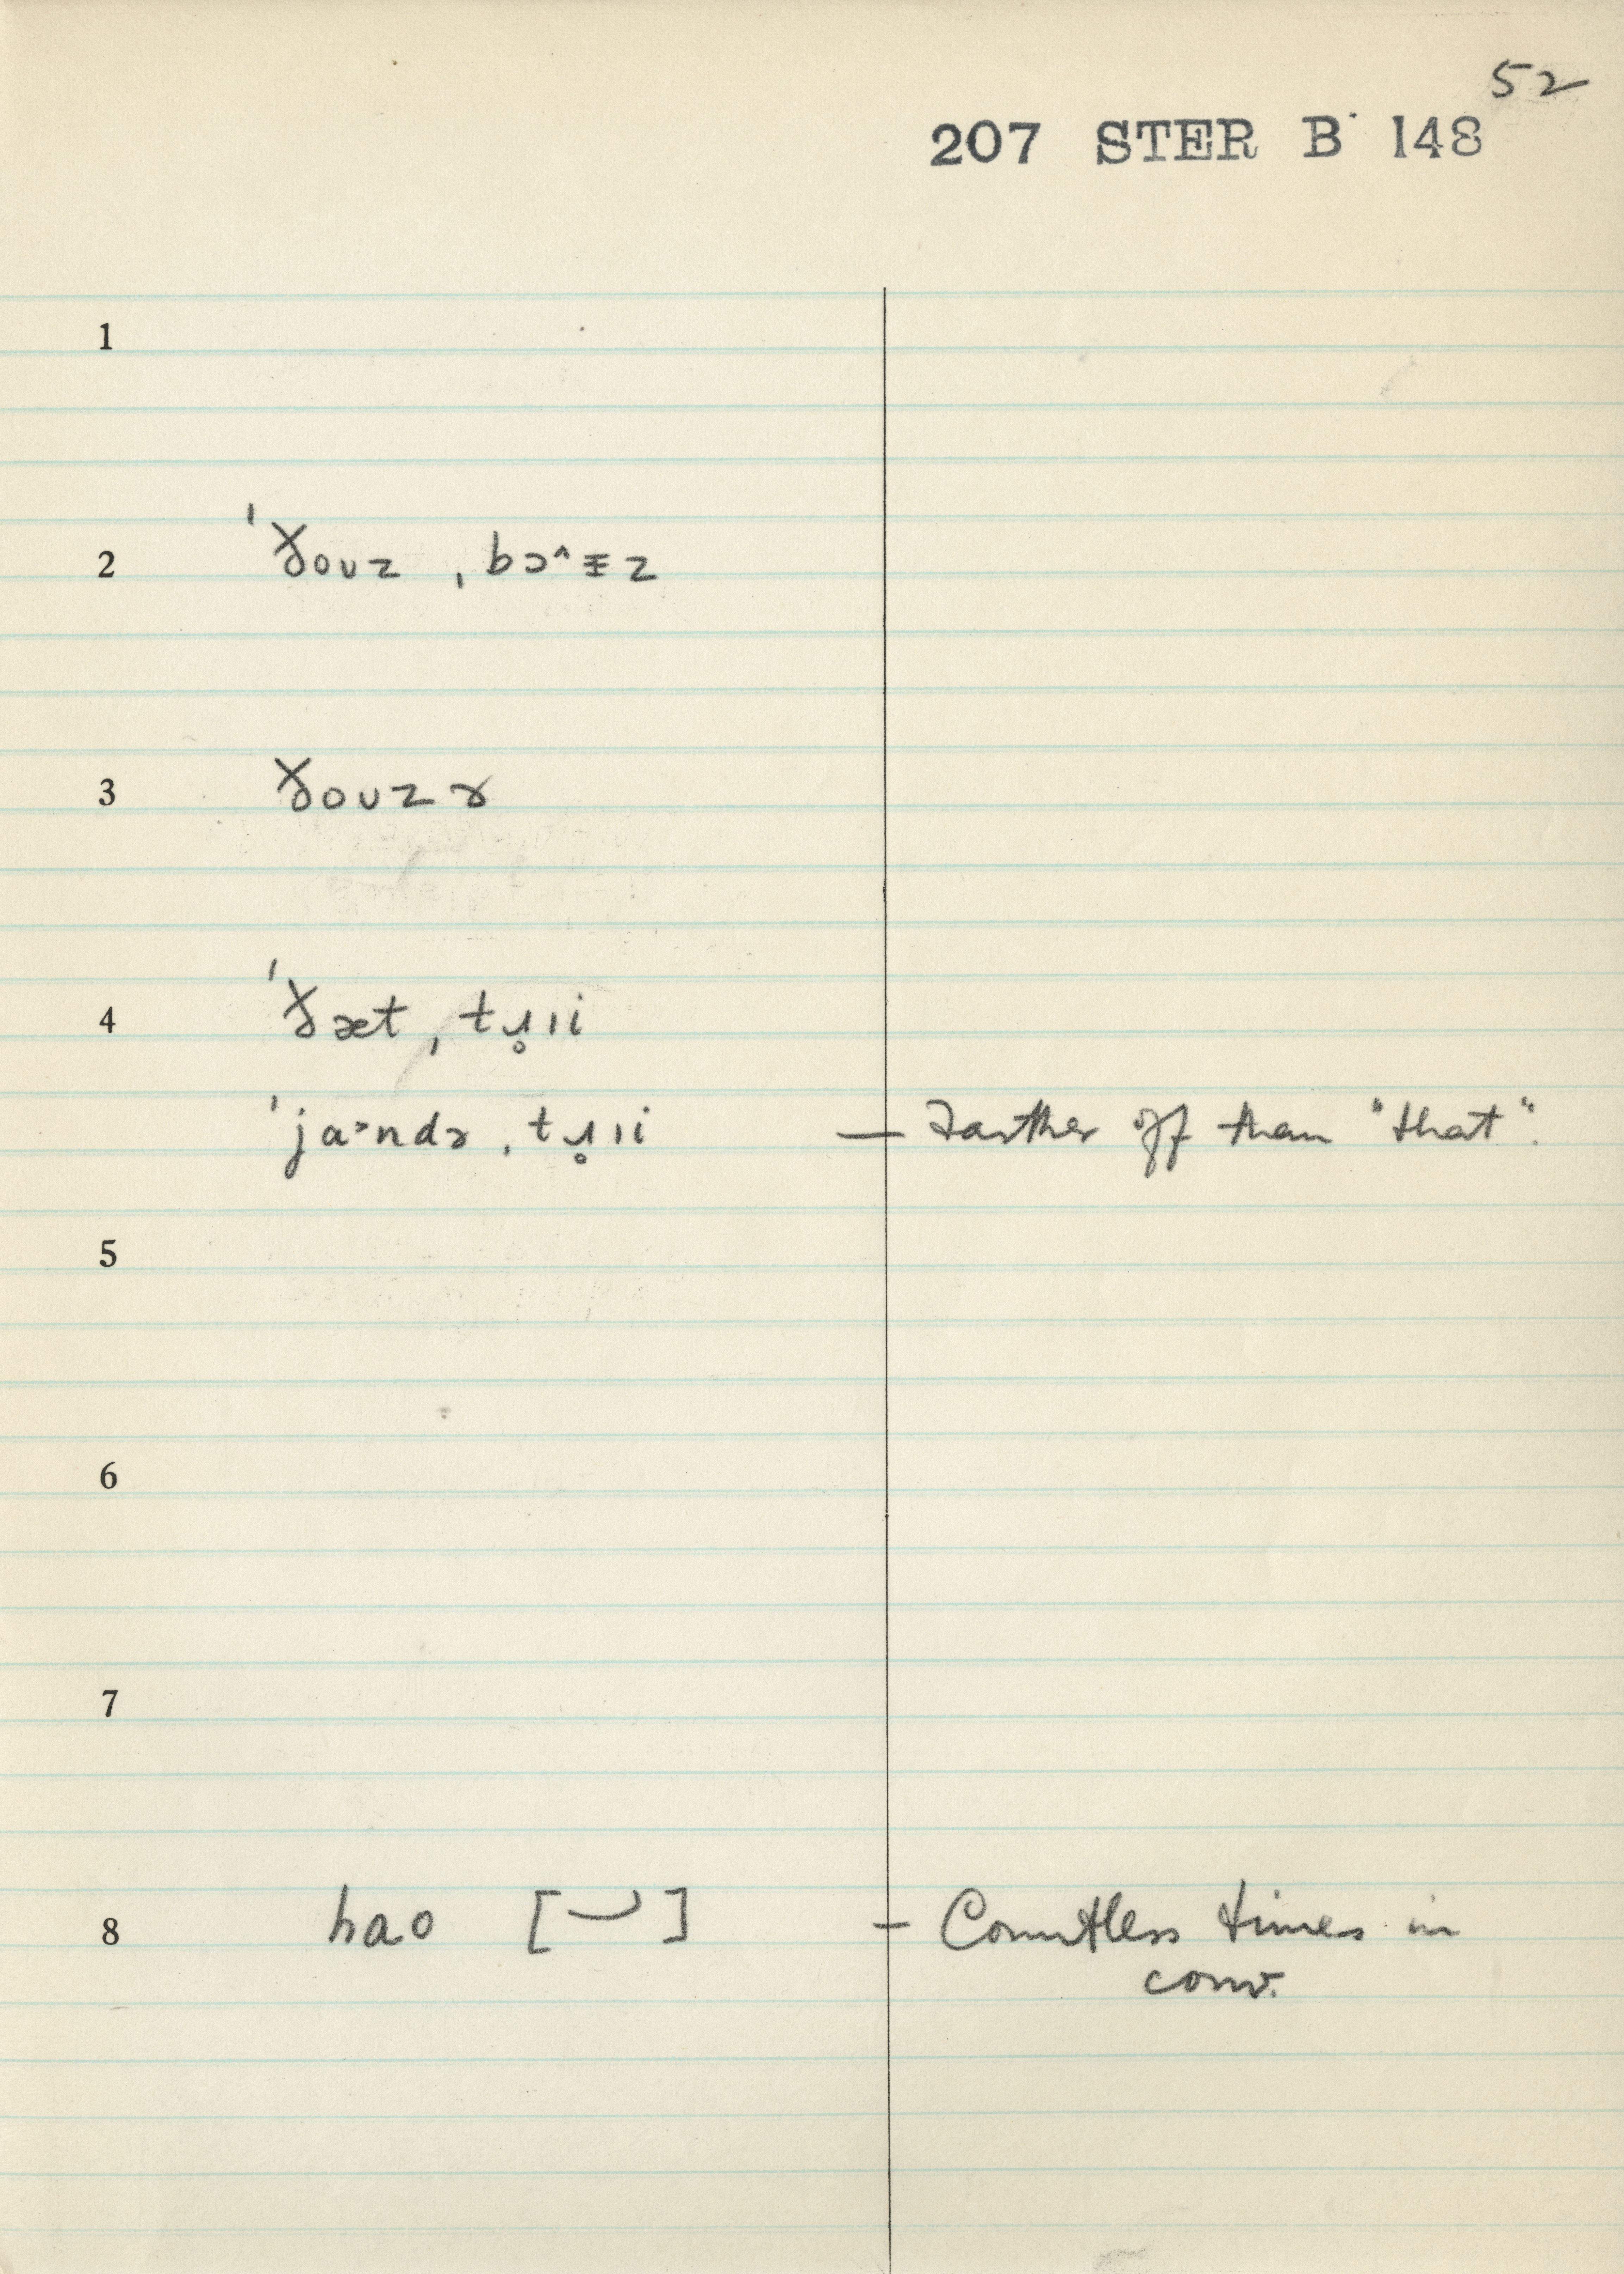 52
207 STER B 148
1
2 ˈðouz ˌbɔ^ɪz
3 ðouzɚ
4 ˈðæt ˌtɹ̥ɪi
ˈja˃ndɚ ˌtɹ̥ɪi — Farther off than "that".
5
6
7
8 hao [ ] — Countless times in
conv.